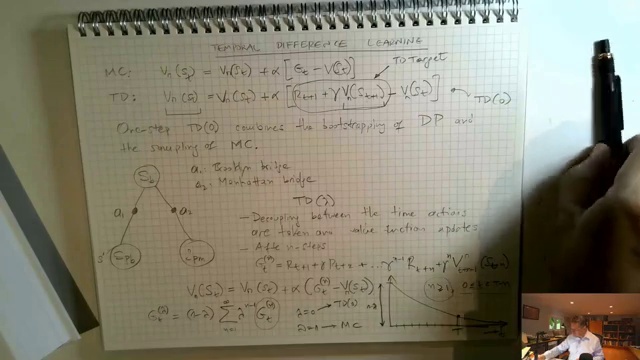 TEMPORAL DIFFERENCE LEARNING
MC: Vπ(St) = Vπ(St) + α [Gt − V(St)]
TD Target
TD: Vπ(St) = Vπ(St) + α [(Rt+1 + γ Vπ(St+1)) − Vπ(St)]
TD(0)
One-step TD(0) combines the bootstrapping of DP and
the sampling of MC.
a1: Brooklyn bridge
a2: Manhattan bridge
a1
a2
s'
TD(λ)
− Decoupling between the time actions
are taken and value function updates
− After n-steps
Vπ(St) = Vπ(St) + α (Gt(n) − Vπ(St))
Gt(λ) = (1−λ) ∑ λn−1 Gt(n)
n=1
λ=0 → TD(0)
λ=1 → MC